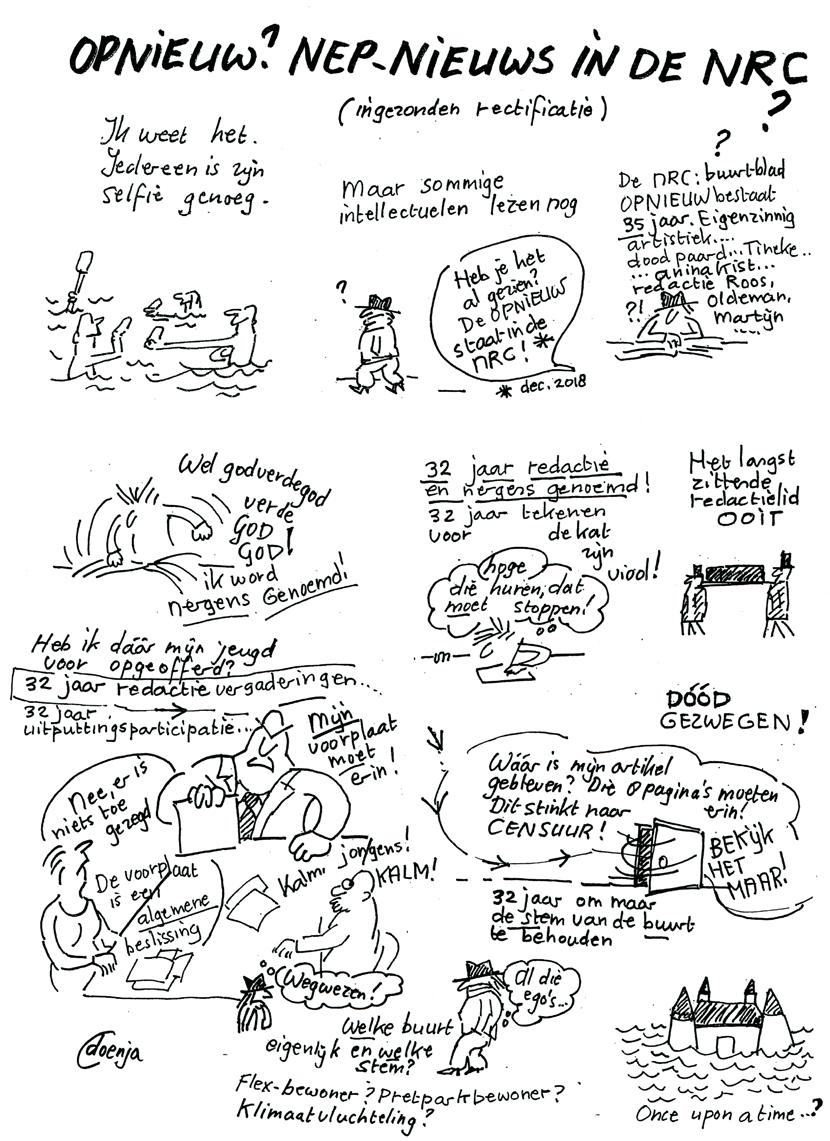 OPNIEUW? NEP-NIEUWS IN DE NRC
?
(ingezonden rectificatie)
Ik weet het.
Iedereen is zijn
selfie genoeg.
Maar sommige
intellectuelen lezen nog
?
Heb je het
al gezien?
De OPNIEUW
staat in de
NRC! *
* dec. 2018
?
De NRC: buurt-blad
OPNIEUW bestaat
35 jaar. Eigenzinnig
artistiek....
dood paard... Tineke..
... anina kist...
redactie Roos,
?! Oldeman,
Martijn
.....
Wel godverdegod
verde
GOD
GOD!
ik word
nergens Genoemd!
32 jaar redactie
en nergens genoemd!
32 jaar tekenen
voor de kat
zijn
viool!
hoge
die huren, dat
moet stoppen!
Het langst
zittende
redactielid
OOIT
DÓÓD
GEZWEGEN!
Heb ik dáár mijn jeugd
voor opgeofferd?
32 jaar redactie vergaderingen...
32 jaar
uitputtingsparticipatie...
Mijn
voorplaat
moet
erin!
Nee, er is
niets toe
gezegd
De voorplaat
is een
algemene
beslissing
Kalm, jongens!
KALM!
Wegwezen!
Wáár is mijn artikel
gebleven? Die 8 pagina's moeten
erin!
Dit stinkt naar
CENSUUR!
BEKIJK
HET
MAAR!
32 jaar om maar
de stem van de buurt
te behouden
Al die
ego's...
Welke buurt
eigenlijk en welke
stem?
Flex-bewoner? Pretparkbewoner?
Klimaatvluchteling?
doenja
Once upon a time...?